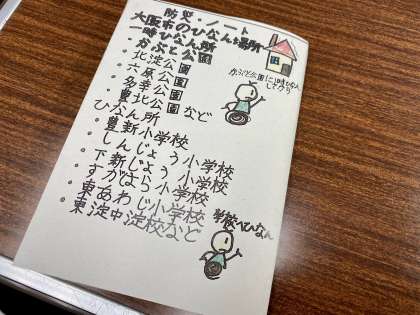 防災・ノート
大阪市のひなん場所
一時ひなん所
・かぶと公園
・北淀公園
・六原公園
・多幸公園
・豊北公園など
ひなん所
・豊新小学校
・しんじょう小学校
・下新じょう小学校
・すがはら小学校
・東あわじ小学校
・東淀中淀校など
かぶと公園に1時ひなん
してから
学校へひなん